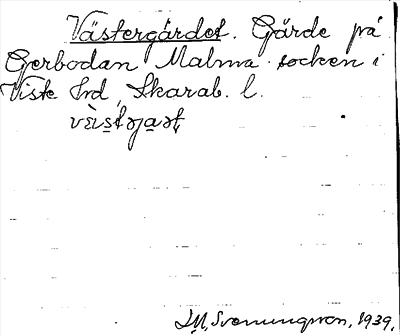 Västergärdet. Gärde på
Gerbodan Malma socken i
Viste hrd, Skarab. l.
J.M. Svenningsson, 1939.